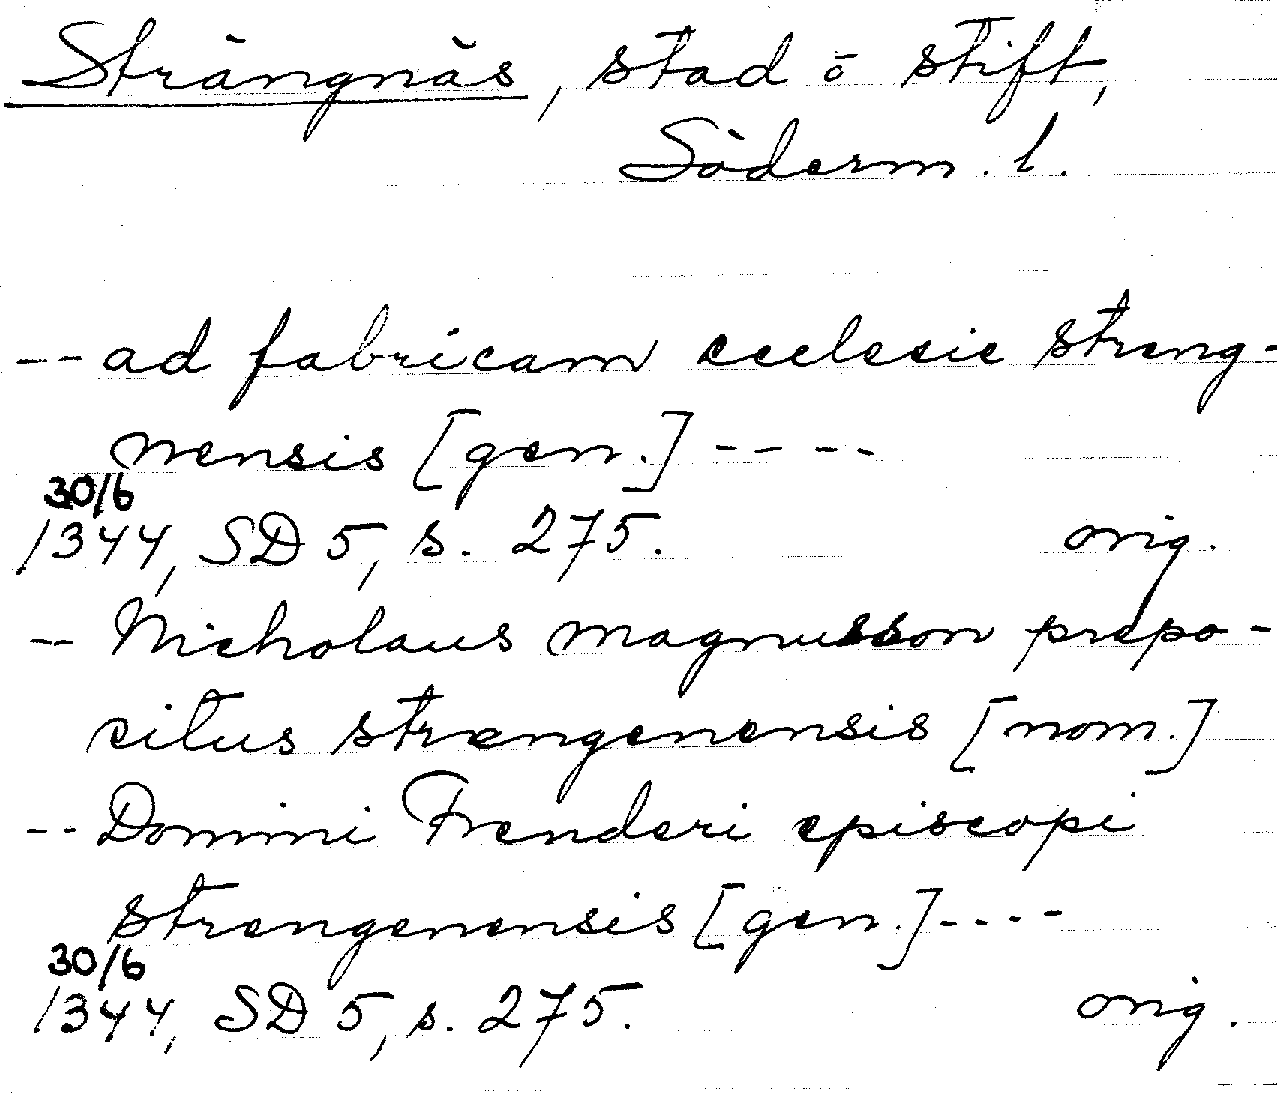 Strängnäs, stad ō stift,
Söderm. l.
-- ad fabricam ecclesie streng-
nensis [gen.] ----
30/6
1344, SD 5, s. 275. orig.
-- Nicholaus magnusson prepo-
citus strengenensis [nom.]
-- Domini Frenderi episcopi
strengenensis [gen.] ----
30/6
1344, SD 5, s. 275. orig.